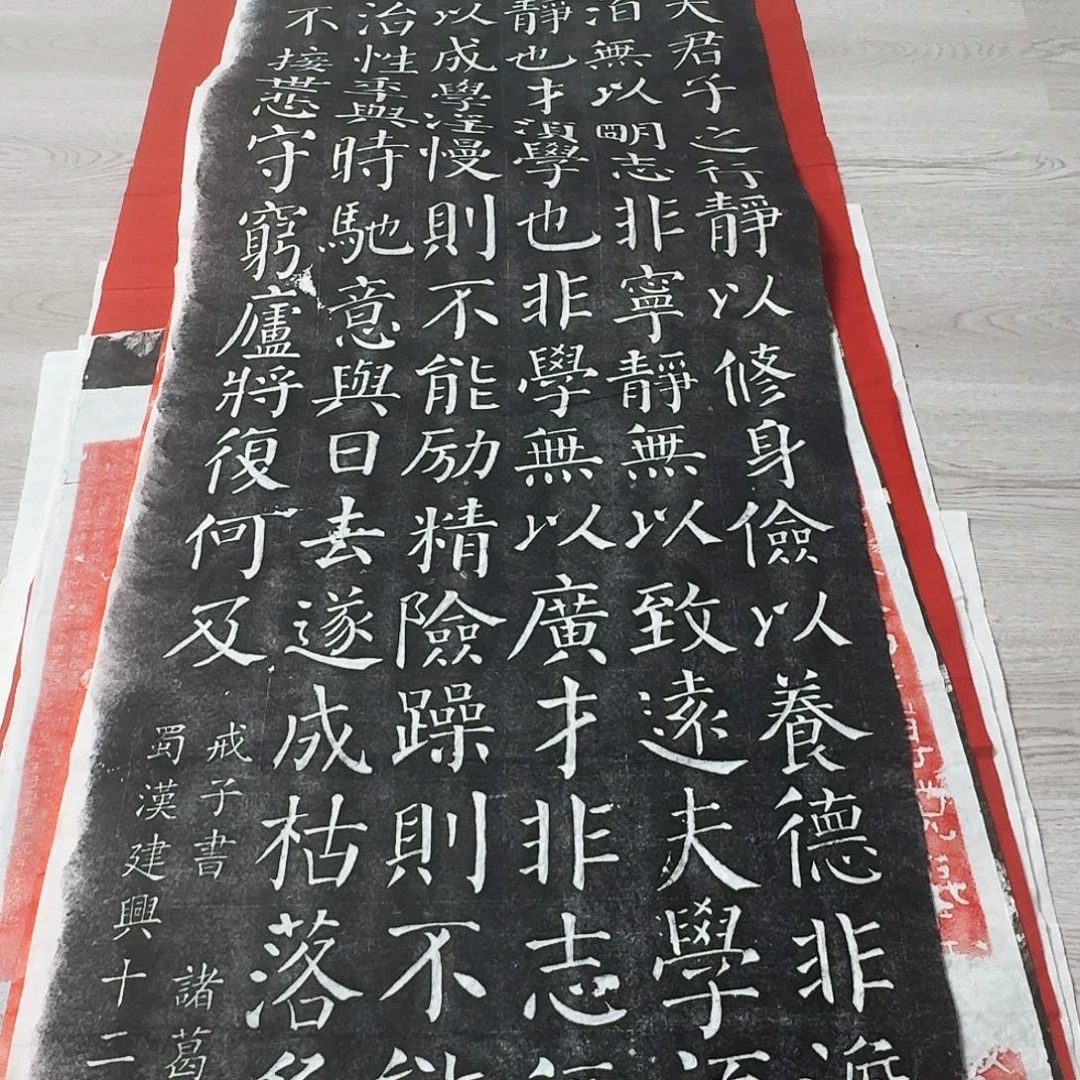 夫君子之行靜以修身儉以養德非澹
泊無以明志非寧靜無以致遠夫學須
靜也才須學也非學無以廣才非志
以成學淫慢則不能励精險躁則不能
治性年與時馳意與日去遂成枯落多
不接世悲守窮廬將復何及
戒子書 諸葛
蜀漢建興十二